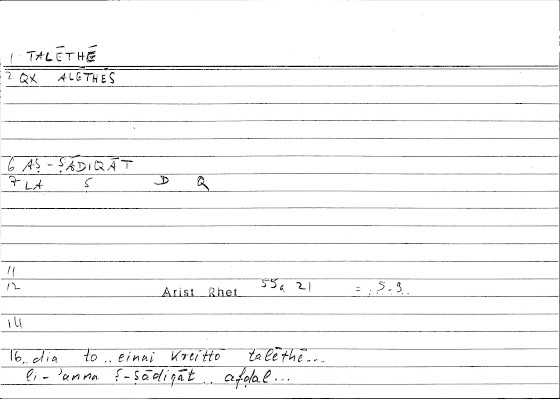 1 TALĒTHĒ
2 QX ALĒTHĒS
6 AṢ-ṢĀDIQĀT
7 LA Ṣ D Q
11
12 Arist Rhet 55a 21 = 5.9
14
16 dia to .. einai kreittō talēthē...
li-'anna ṣ-ṣādiqāt .. afḍal...